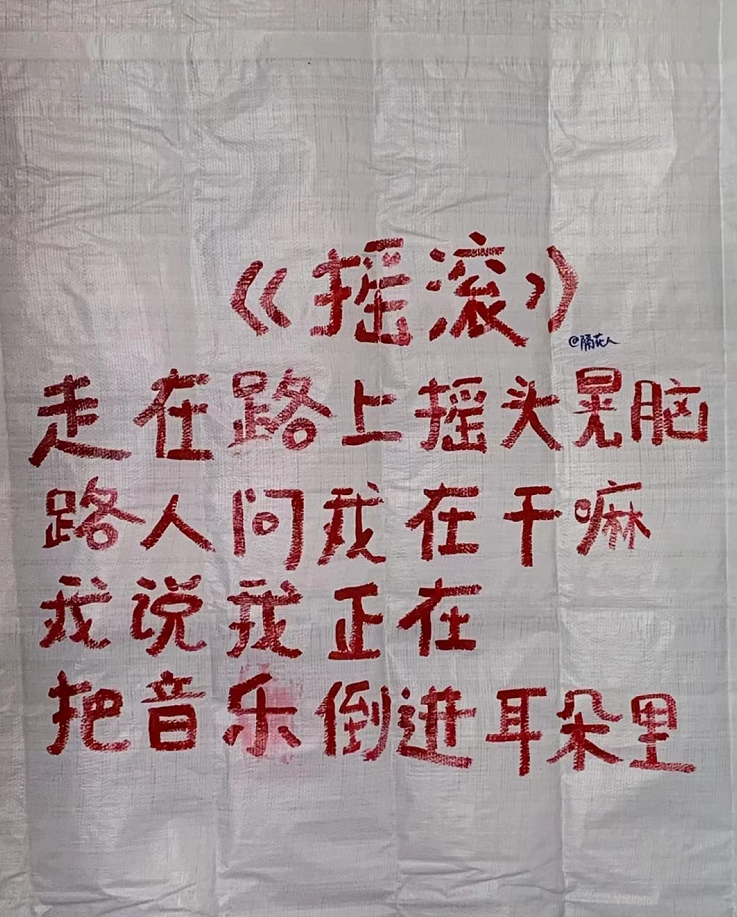 《摇滚》
@隔花人
走在路上摇头晃脑
路人问我在干嘛
我说我正在
把音乐倒进耳朵里